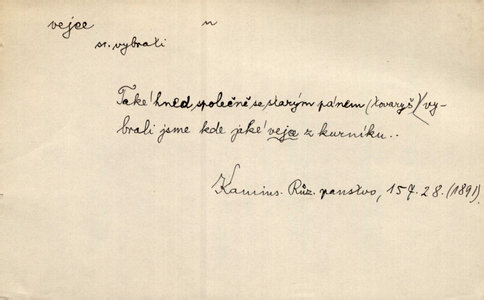 vejce n
sr. vybrati
Také hned, společně se starým pánem (tovaryš) vy-
brali jsme kde jaké vejce z kurníku..
Kamins. Růz. panstvo, 157.28. (1891).